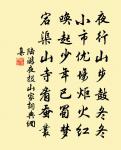 夜行山步鼓冬冬
小市优场炬火红
唤起少年巴蜀梦
宕渠山寺看蚕丛
陆游夜投山家词典网
集